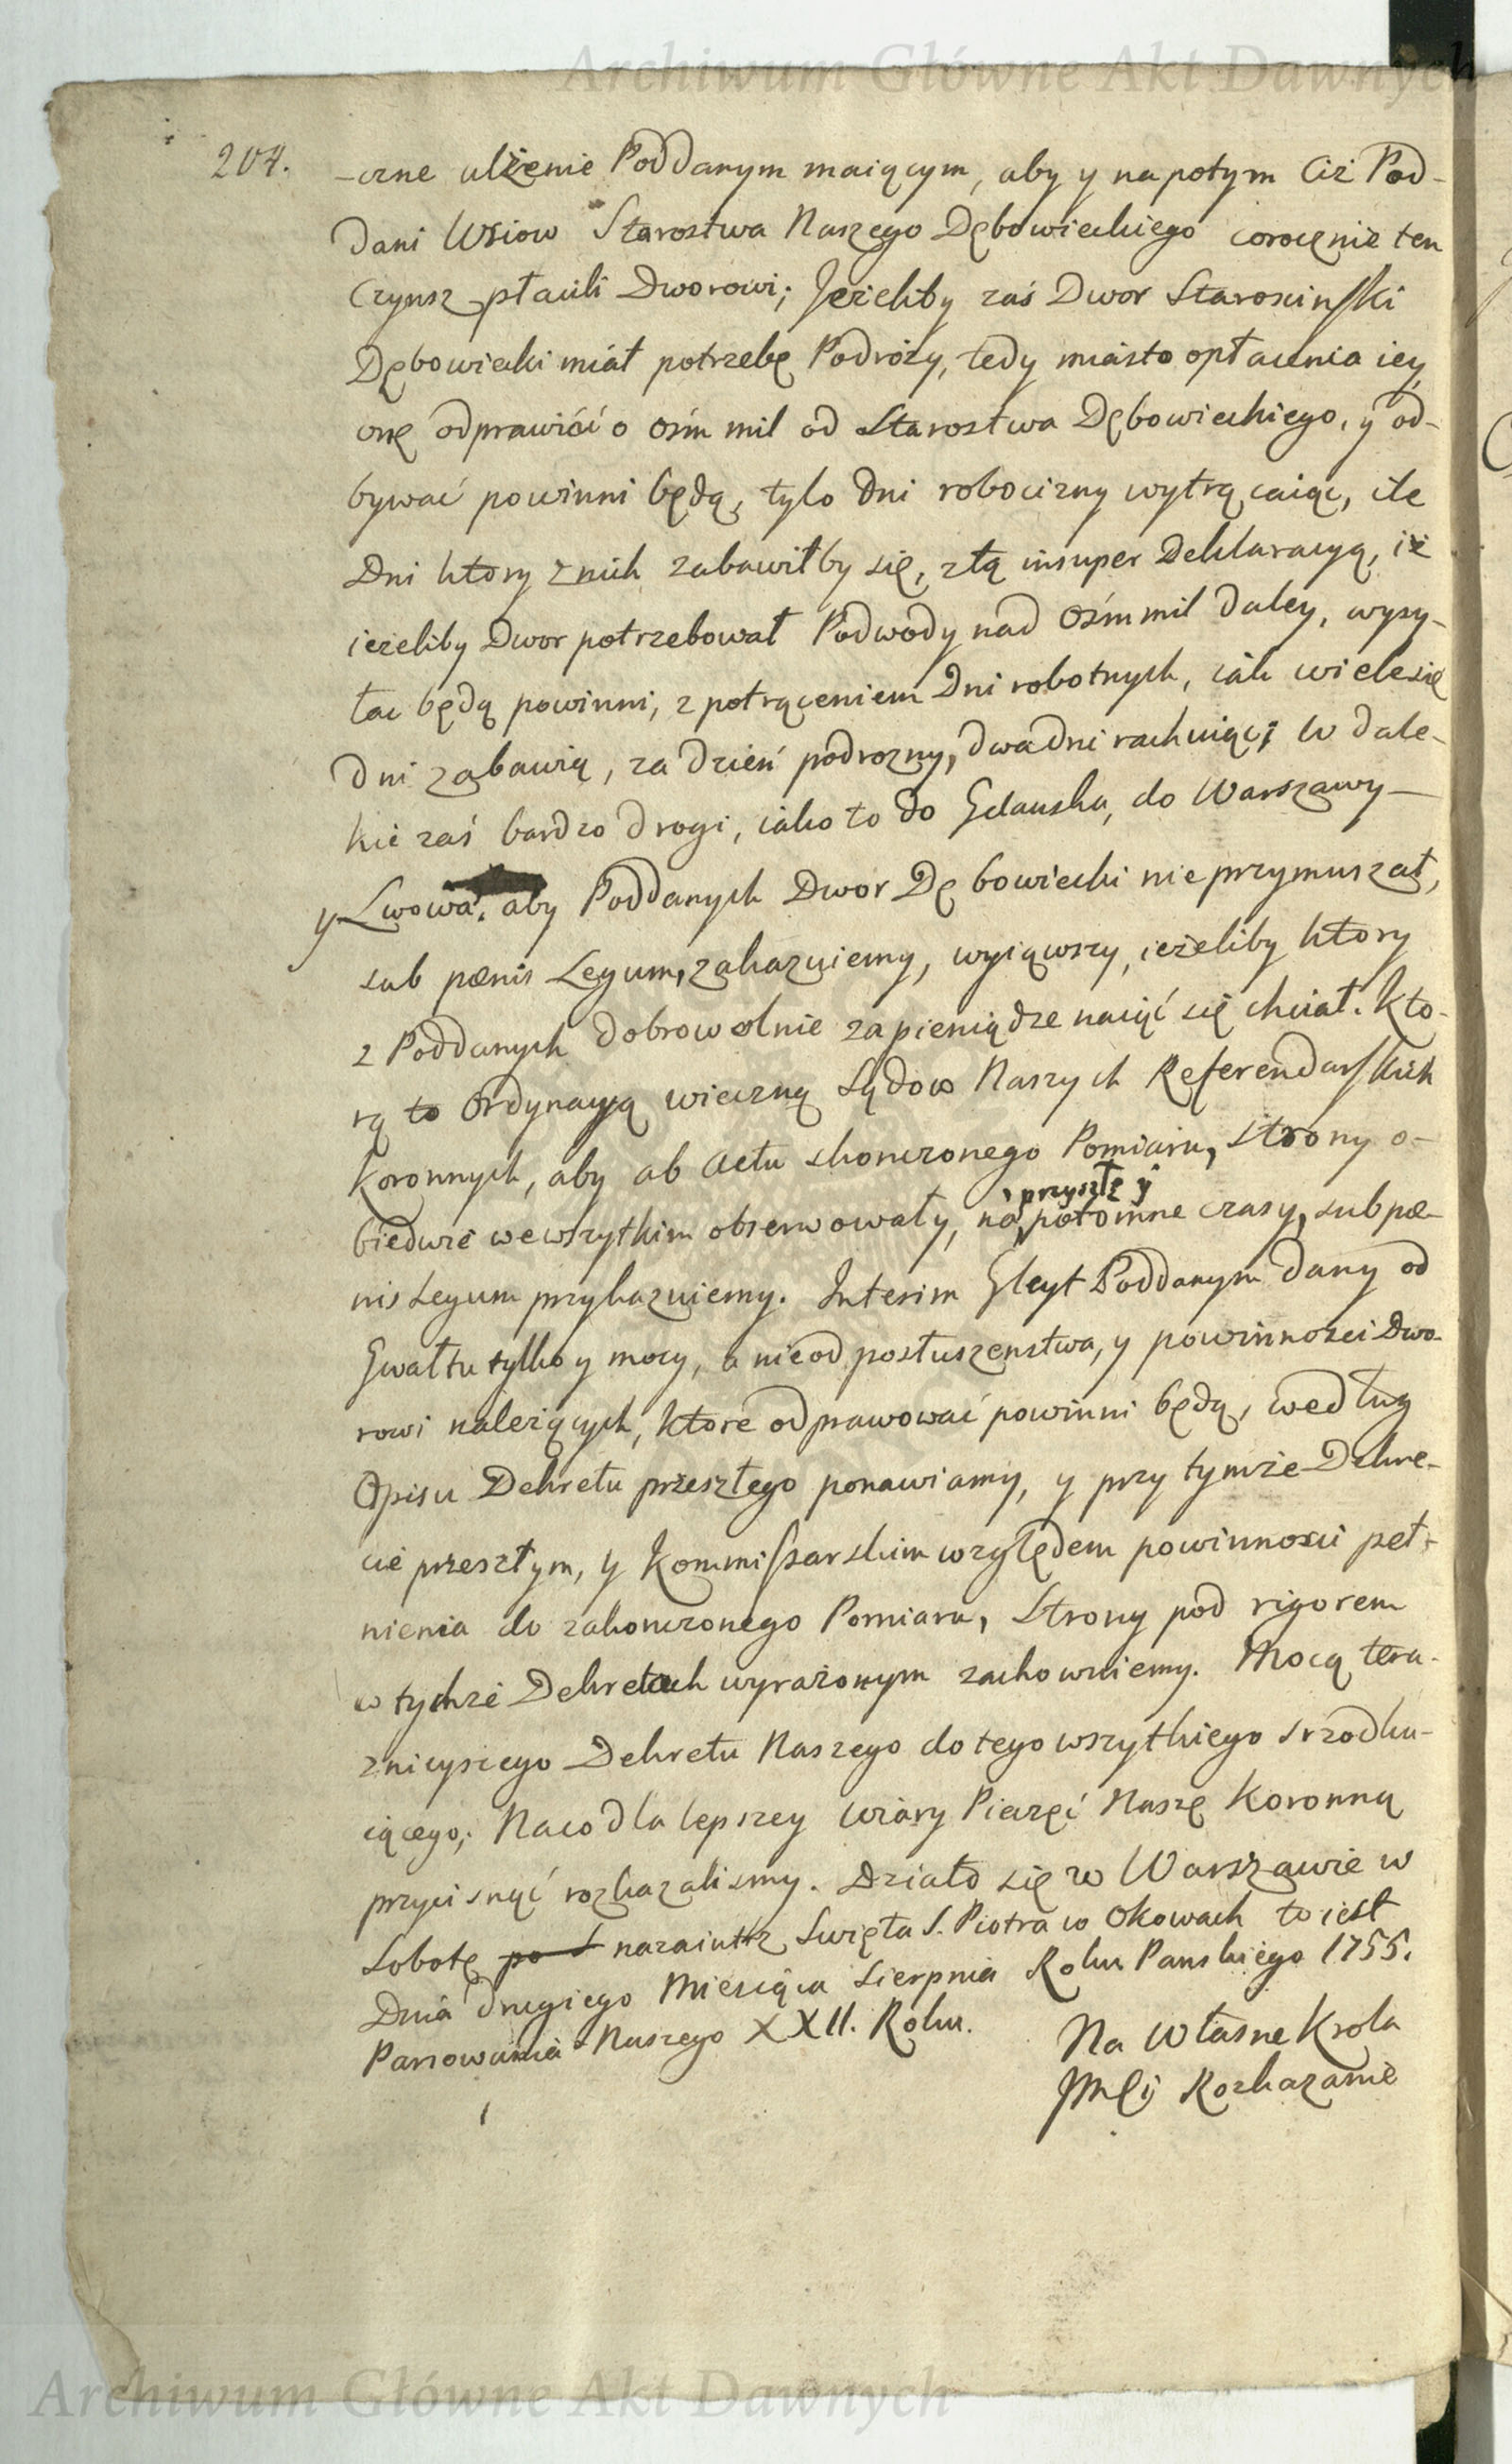 Archiwum Główne Akt Dawnych
204.
-czne ulżenie Poddanym maiącym, aby y napotym Ciż Pod-
dani Wsiow Starostwa Naszego Dębowieckiego corocznie ten
Czynsz płacili Dworowi; Jeżeliby zaś Dwor Starościnski
Dębowiecki miał potrzebę Podróży, tedy miasto opłacenia iey,
onę odprawić o ośm mil od Starostwa Dębowieckiego, y od-
bywać powinni będą, tylo dni robocizny wytrącaiąc, ile
Dni ktory znich zabawiłby się, ztą insuper Deklaracyą, iż
ieżeliby Dwor potrzebował Podwody nad Ośm mil daley, wysy-
łac będą powinni, z potrąceniem Dni robotnych, iak wiele się
dni zabawią, za dzień podrozny, dwa dni rachuiąc; W dale-
kie zaś bardzo drogi, iako to do Gdanska, do Warszawy
y Lwowa, aby Poddanych Dwor Dębowiecki nie przymuszał,
sub pœnis Legum, zakazuiemy, wyiąwszy, ieżeliby ktory
z Poddanych dobrowolnie za pieniądze naiąć się chciał. Kto-
rą to Ordynacyą wieczną Sądow Naszych Referendarskich
Koronnych, aby ab Actu skonczonego Pomiaru, Strony o-
biedwie we wszytkim obserwowały, na
przyszłe y
potomne czasy, sub pœ-
nis Legum przykazuiemy. Interim Gleyt Poddanym dany od
Gwałtu tylko y mocy, a nie od posłuszenstwa, y powinnosci Dwo-
rowi należących, ktore odprawować powinni będą, według
Opisu Dekretu przeszłego ponawiamy, y przy tymże Dekre-
cie przeszłym, y Kommissarskim względem powinnosci peł-
nienia do zakonczonego Pomiaru, Strony pod rigorem
w tychże Dekretach wyrażonym zachowuiemy. Mocą tera-
znieyszego Dekretu Naszego do tego wszytkiego srzodku-
iącego; Na co dla lepszey wiary Pieczęć Naszę Koronną
przycisnąć rozkazalismy. Działo się w Warszawie w
Sobotę po S nazaiutrz Swięta S. Piotra w Okowach to iest
Dnia drugiego Miesiąca Sierpnia Roku Panskiego 1755.
Panowania Naszego XXII. Roku.
Na Własne Krola
JMCi Rozkazanie
Archiwum Główne Akt Dawnych